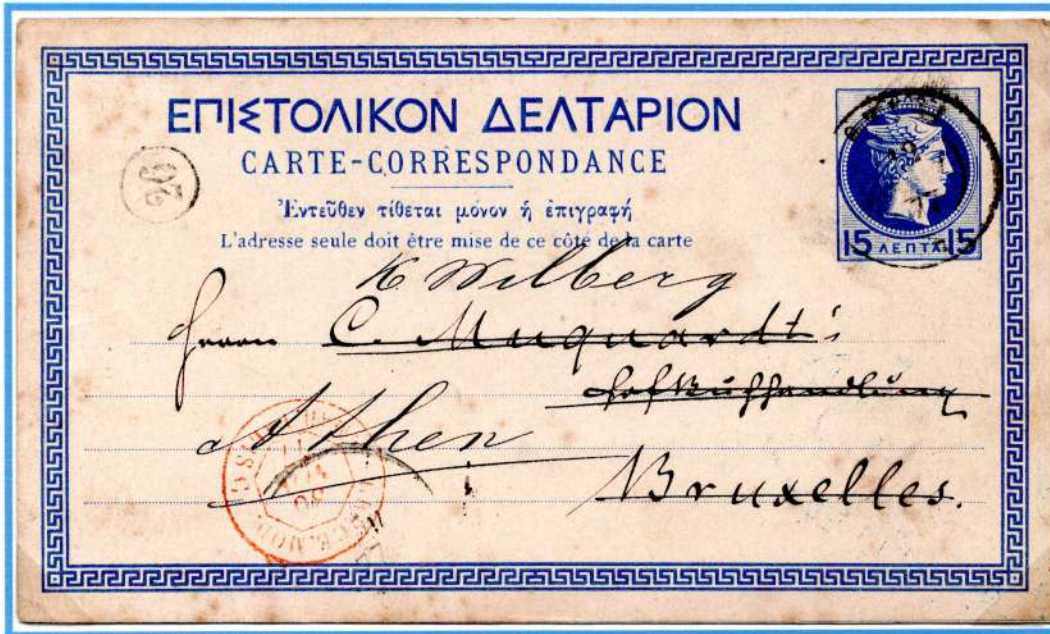 ΕΠΙΣΤΟΛΙΚΟΝ ΔΕΛΤΑΡΙΟΝ
CARTE-CORRESPONDANCE
Ἐντεῦθεν τίθεται μόνον ἡ ἐπιγραφή
L'adresse seule doit être mise de ce côté de la carte
15 ΛΕΠΤΑ 15
97
K Wilberg
Herrn C. Muquardt's
Hofbuchhandlung
Athen
Bruxelles.